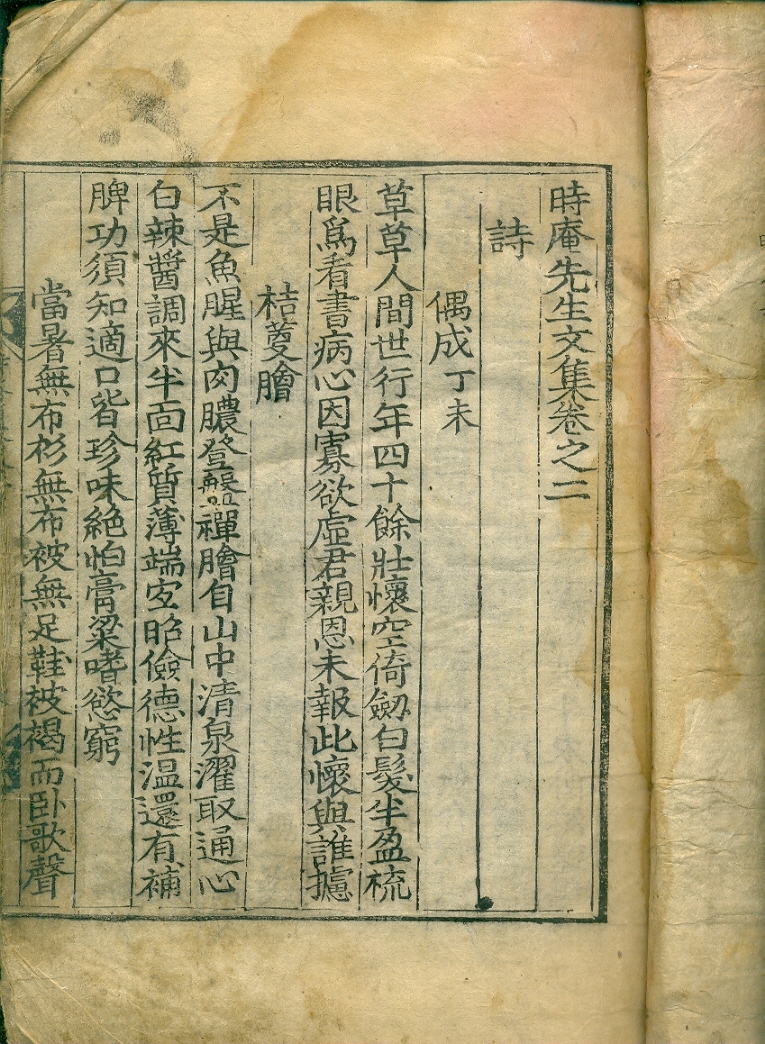 時庵先生文集卷之二
詩
偶成丁未
草草人間世行年四十餘壯懷空倚劒白髮半盈梳
眼爲看書病心因寡欲虛君親恩未報此懷與誰攄
桔䓀膾
不是魚腥與肉膿登盤禪膾自山中清泉濯取通心
白辣醬調來半面紅質薄端宜昭儉德性温還有補
脾功須知適口皆珍味絶怕膏粱嗜慾窮
當暑無布衫無布被無足鞋被褐而卧歌聲